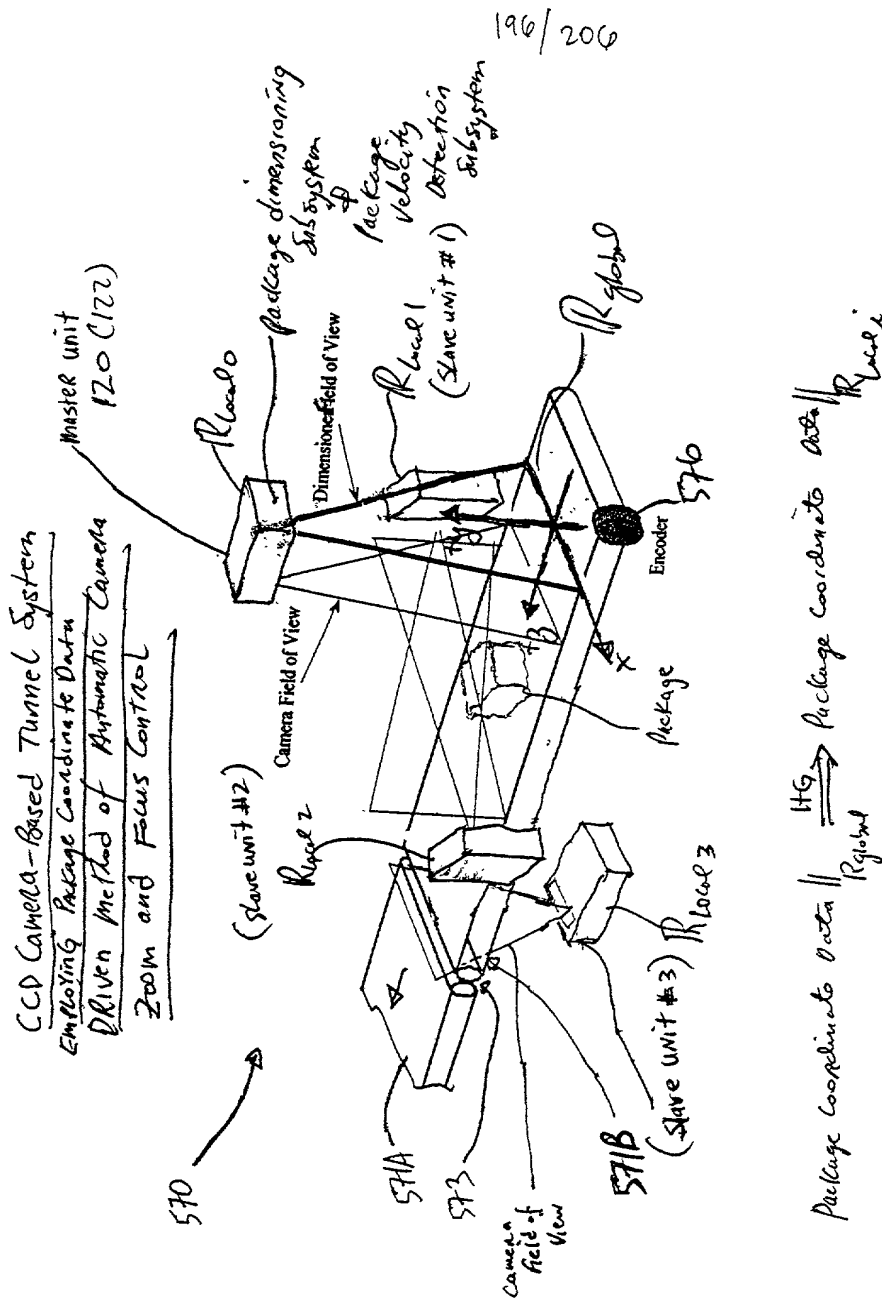 196/206
CCD Camera-Based Tunnel System
Employing Package Coordinate Data
DRiven Method of Automatic Camera
Zoom and Focus Control
Master unit
120 (122)
Rlocal 0
package dimensioning
subsystem
&
Package
Velocity
Detection
Subsystem
Dimensioner Field of View
Camera Field of View
Rlocal 1
(slave unit #1)
Rglobal
(slave unit #2)
Rlocal 2
570
571A
573
Camera
Field of
View
571B
(slave unit #3)
Rlocal 3
Package
x
y
Encoder
576
Package Coordinate Data || Rglobal HG ⟹ Package Coordinate Data || Rlocal i